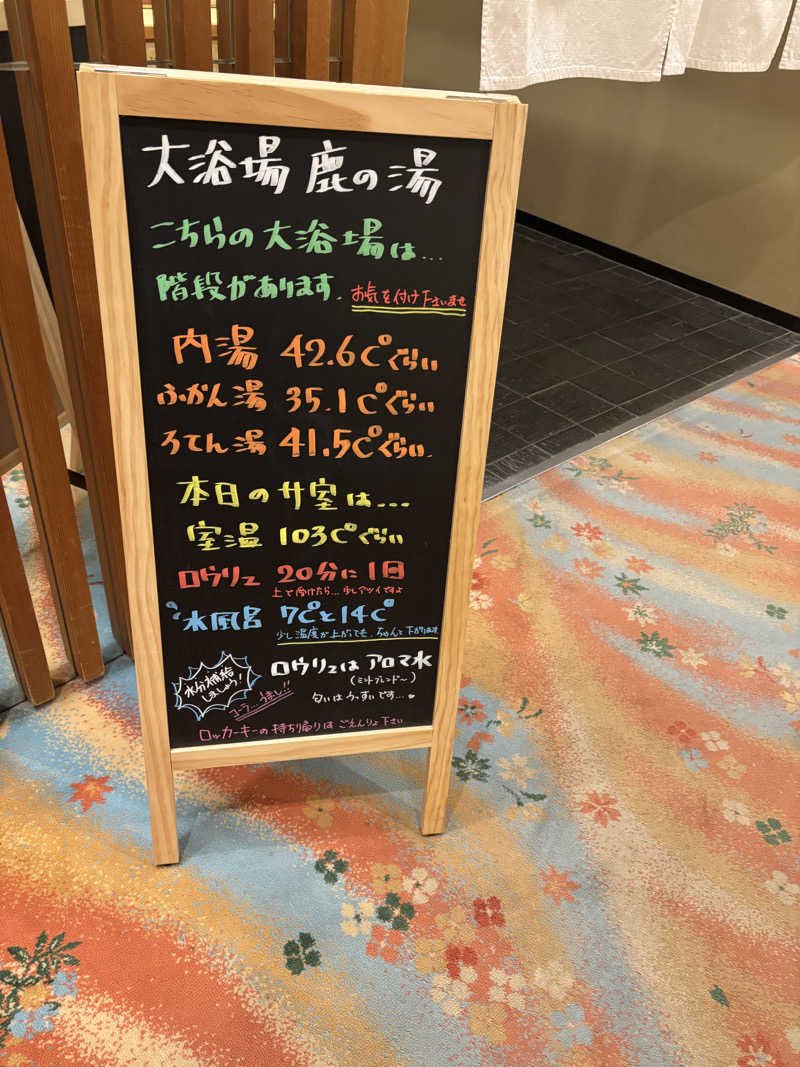 大浴場 鹿の湯
こちらの大浴場は...
階段があります. お気を付け下さいませ
内湯 42.6℃ぐらい
ふかん湯 35.1℃ぐらい
ろてん湯 41.5℃ぐらい.
本日のサ室は...
室温 103℃ぐらい
ロウリュ 20分に1回
上で受けたら... 少しアツイですよ
水風呂 7℃と14℃
少し温度が上がっても、ちゃんと下がります
水分補給
しましょう!
コーラ...うまし!!
ロウリュは アロマ水
(ミントブレンド〜)
匂いはうっすいです...♥
ロッカーキーの持ち帰りは ごえんりょ下さい